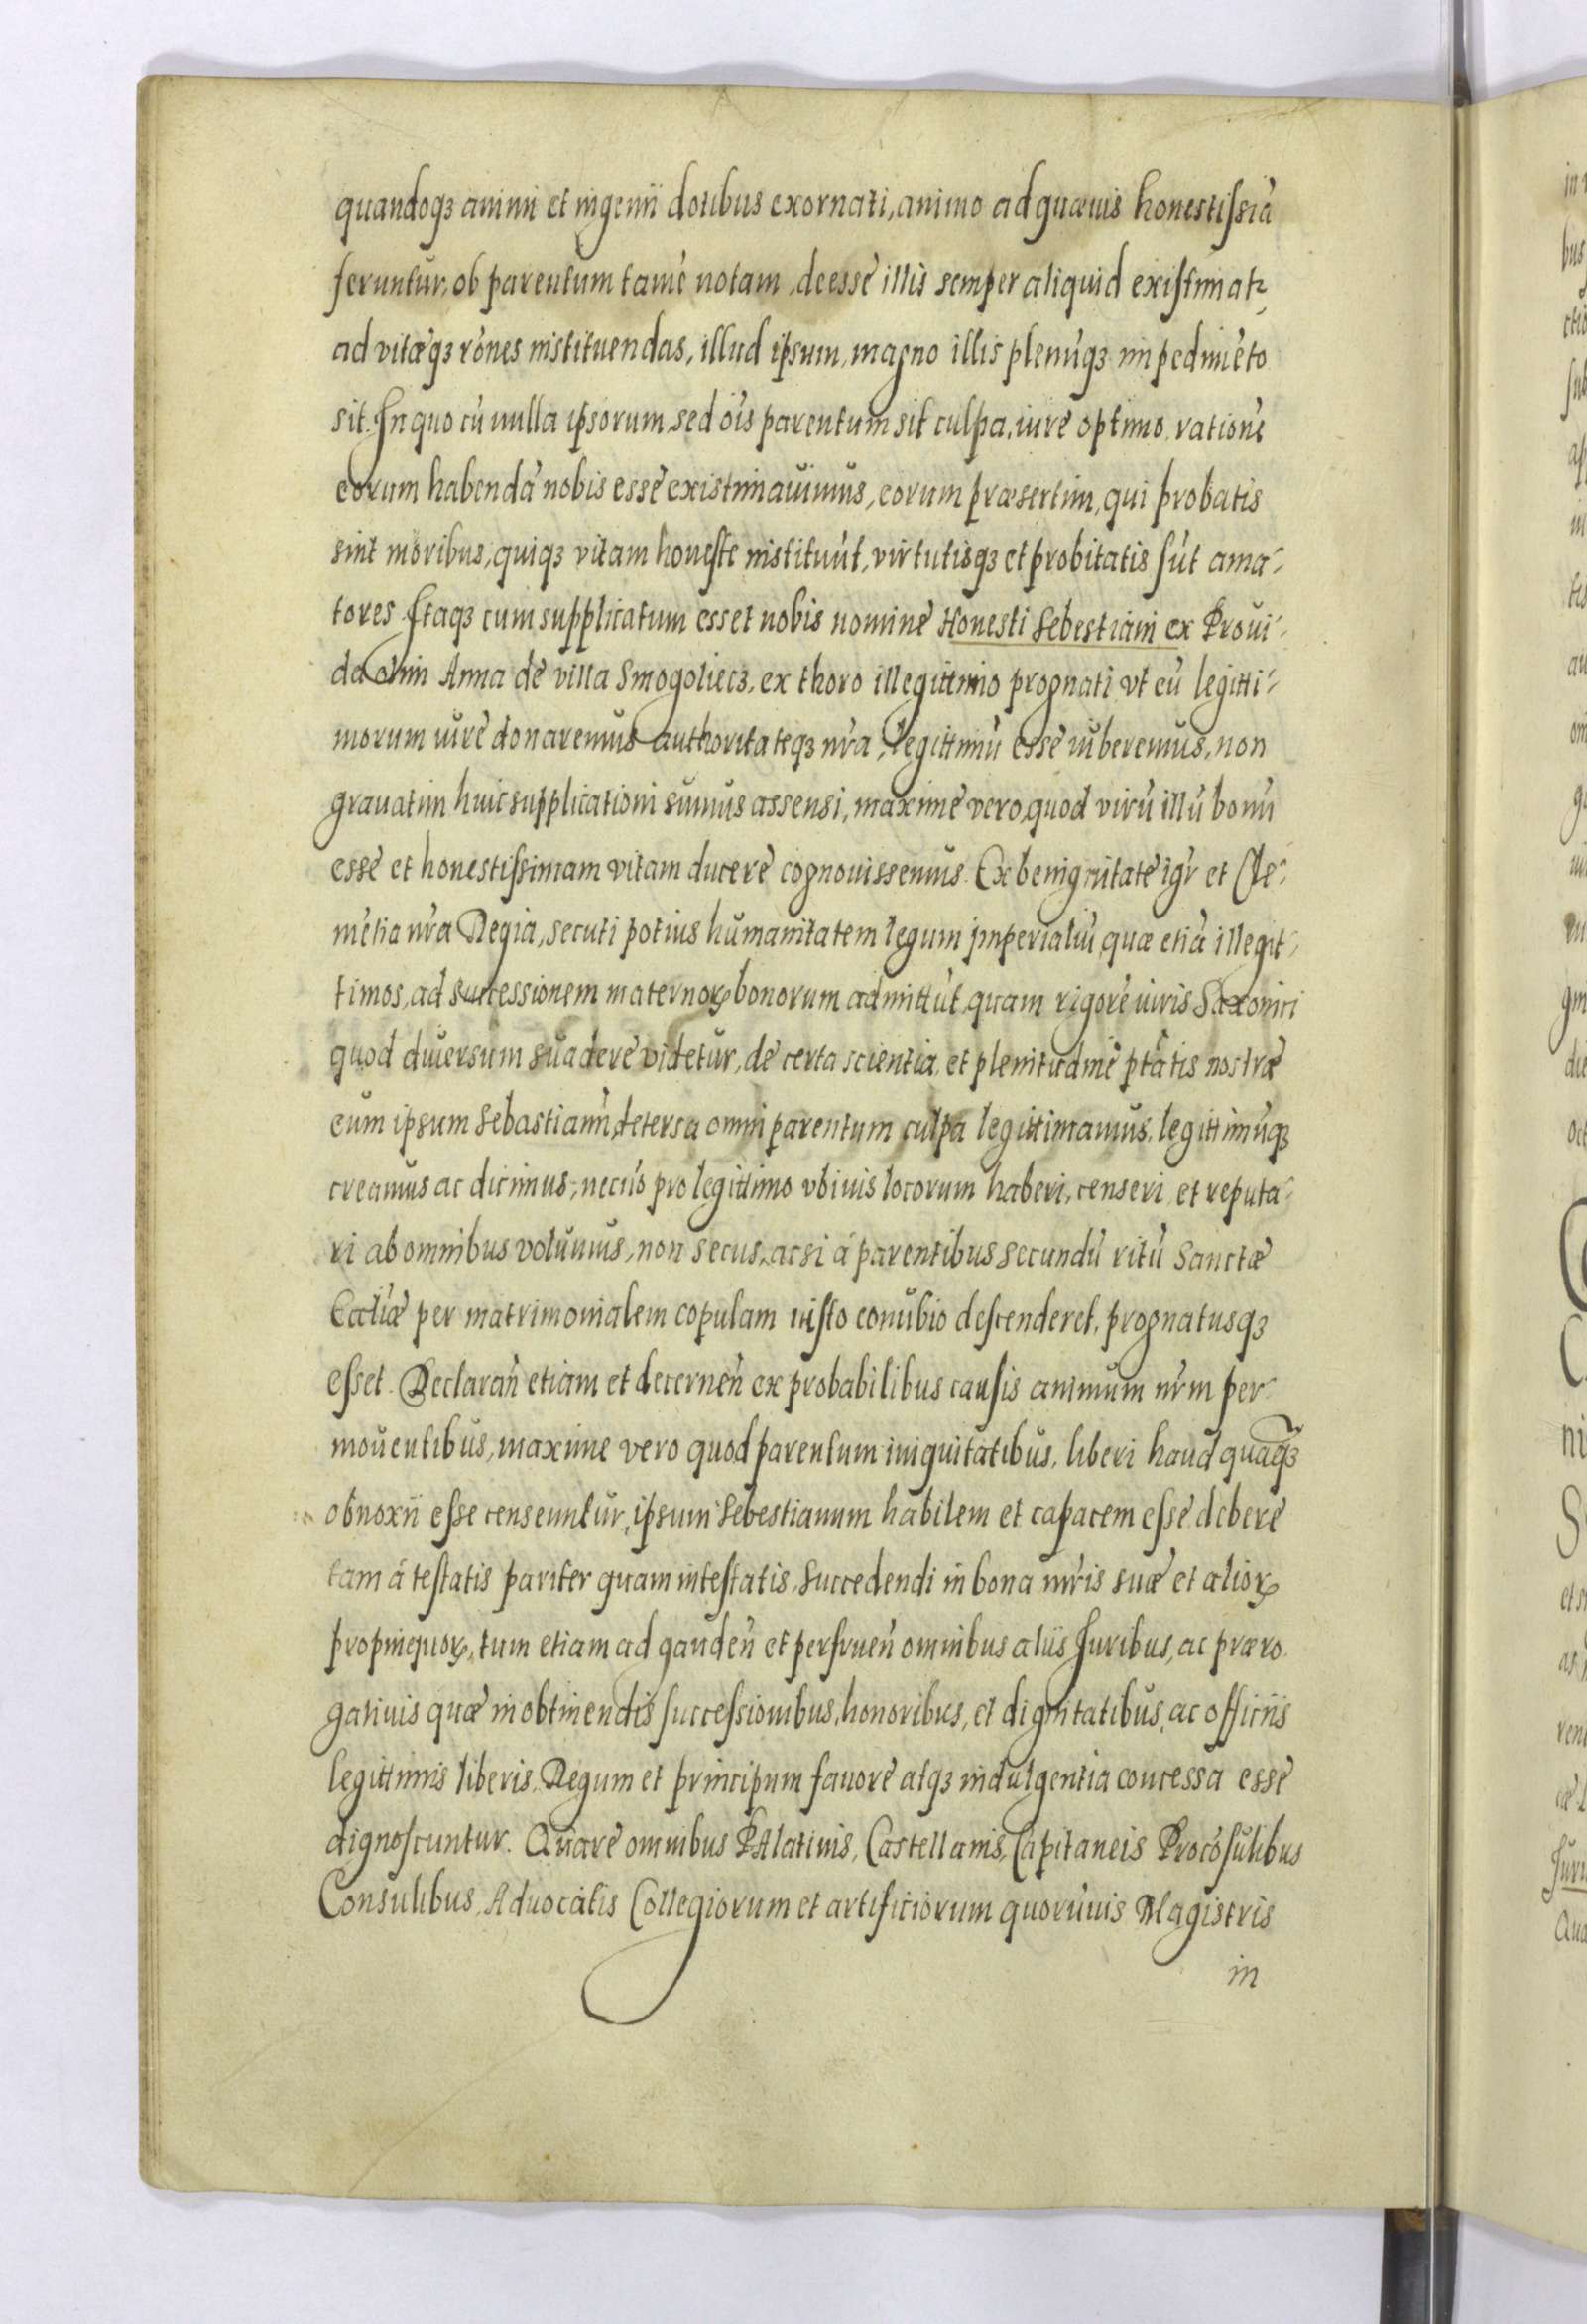 quandoqȝ animi et ingenii dotibus exornati, animo ad quæuis honestissiā
feruntur, ob parentum tamē notam, deesse illis semper aliquid existimatꝛ,
ad vitæqȝ rōnes instituendas, illud ipsum, magno illis plerūqȝ impedimēto
sit. In quo cū nulla ipsorum, sed ōis parentum sit culpa, iure optimo, rationē
eorum habendā nobis esse existimauimus, eorum præsertim, qui probatis
sint moribus, quiqȝ vitam honeste instituūt, virtutisqȝ et probitatis sūt ama-
tores. Itaqȝ cum supplicatum esset nobis nomine Honesti Sebestiani ex Proui-
da olim Anna de villa Smogoliecz, ex thoro illegittimo prognati vt eū legitti-
morum iure donaremus authoritateqȝ nr̄a, legittimū esse iuberemus, non
grauatim huic supplicationi sumus assensi, maxime vero, quod virū illū bonū
esse et honestissimam vitam ducere cognouissemus. Ex benignitate igr̄ et Cle-
mētia nr̄a Regia, secuti potius humanitatem legum imperialiū, quæ etiā illegit-
timos, ad successionem maternoꝝ bonorum admittūt, quam rigore iuris Saxonici
quod diuersum suadere videtur, de certa scientia, et plenitudine ptātis nostræ
eum ipsum Sebastianū, detersa omni parentum culpa legittimamus, legittimūqȝ
creamus ac dicimus, necnō pro legittimo vbiuis locorum haberi, censeri et reputa-
ri ab omnibus volumus, non secus, acsi á parentibus secundū ritū Sanctæ
Eccliæ per matrimonialem copulam iusto conubio descenderet, prognatusqȝ
esset. Declaran̄ etiam et decernen̄ ex probabilibus causis animum nr̄m per-
mouentibus, maxime vero quod parentum iniquitatibus, liberi haud quaq̄ȝ
obnoxii esse censeuntur, ipsum Sebestianum habilem et capacem esse debere
tam á testatis pariter quam intestatis, succedendi in bona mr̄is suæ et alioꝝ
propinquoꝝ, tum etiam ad gauden̄ et perfruen̄ omnibus aliis Juribus, ac præro
gatiuis quæ in obtinendis successionibus, honoribus, et dignitatibus, ac officiis
legittimis liberis, Regum et principum fauore atqȝ indulgentia concessa esse
dignoscuntur. Quare omnibus PAlatinis, Castellanis, Capitaneis Procōsulibus
Consulibus, Aduocatis Collegiorum et artificiorum quorūuis Magistris
in